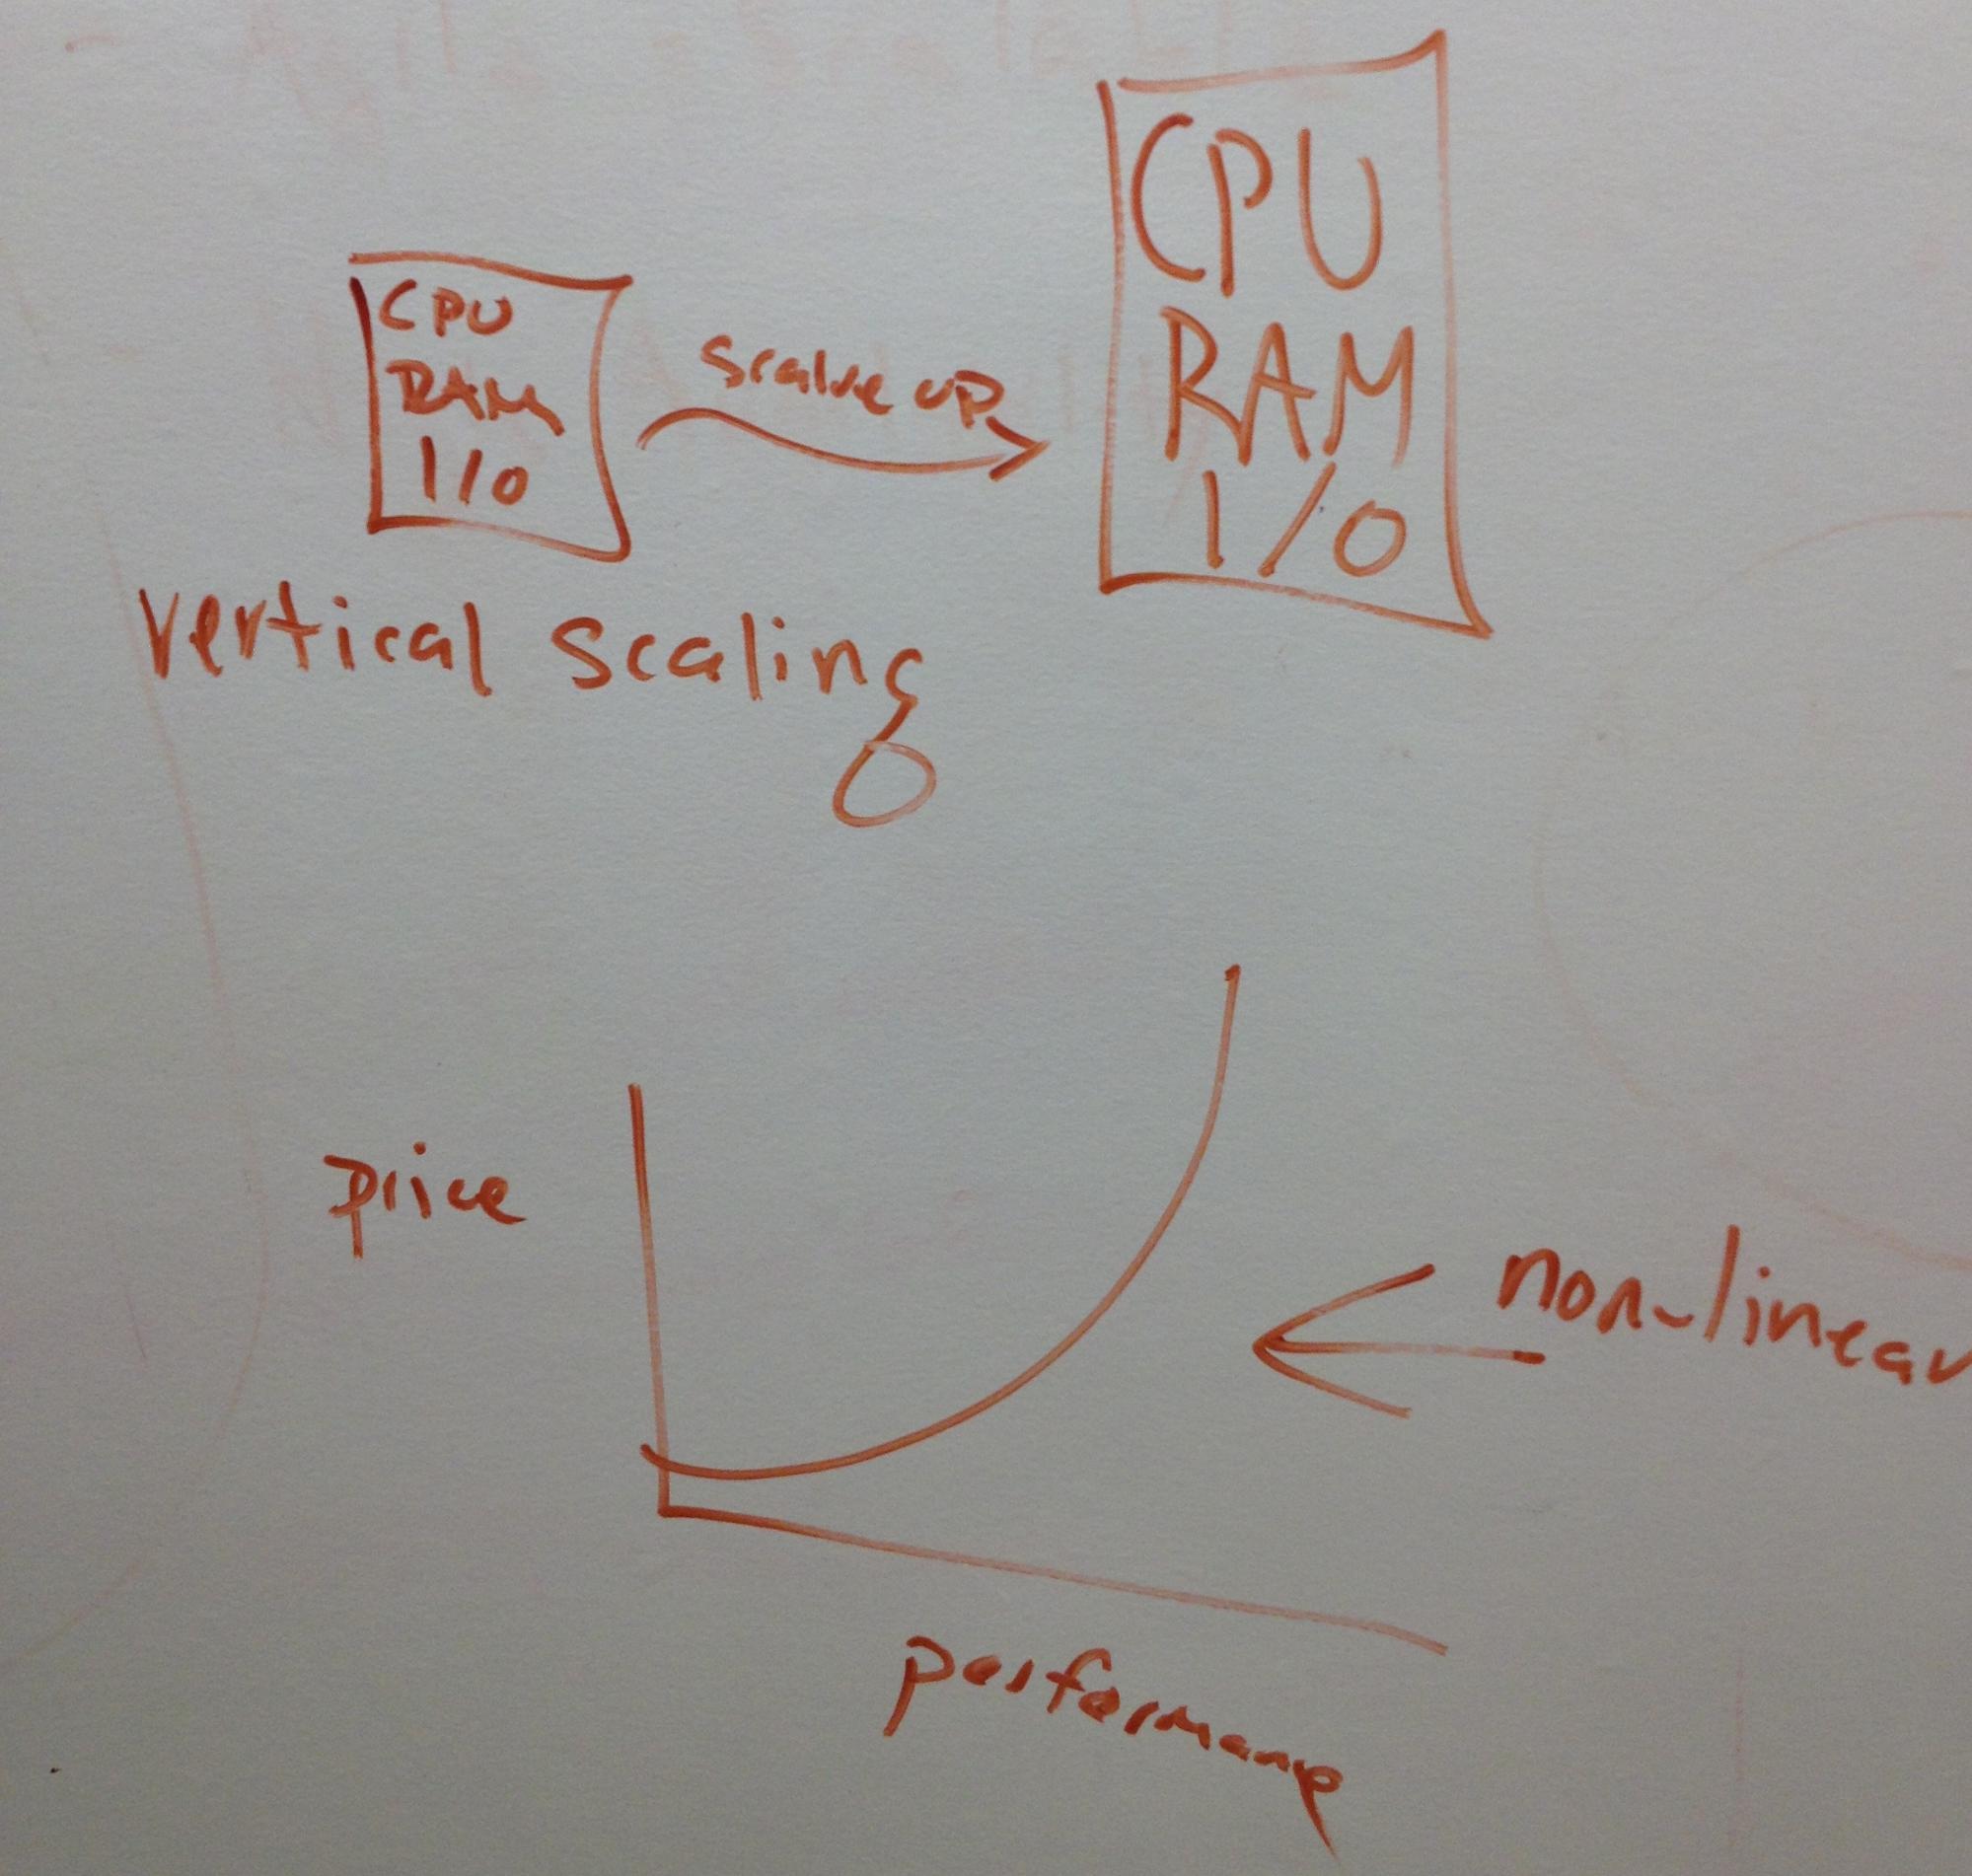 CPU
RAM
I/O
scalue up
CPU
RAM
I/O
vertical scaling
price
non-linear
performance